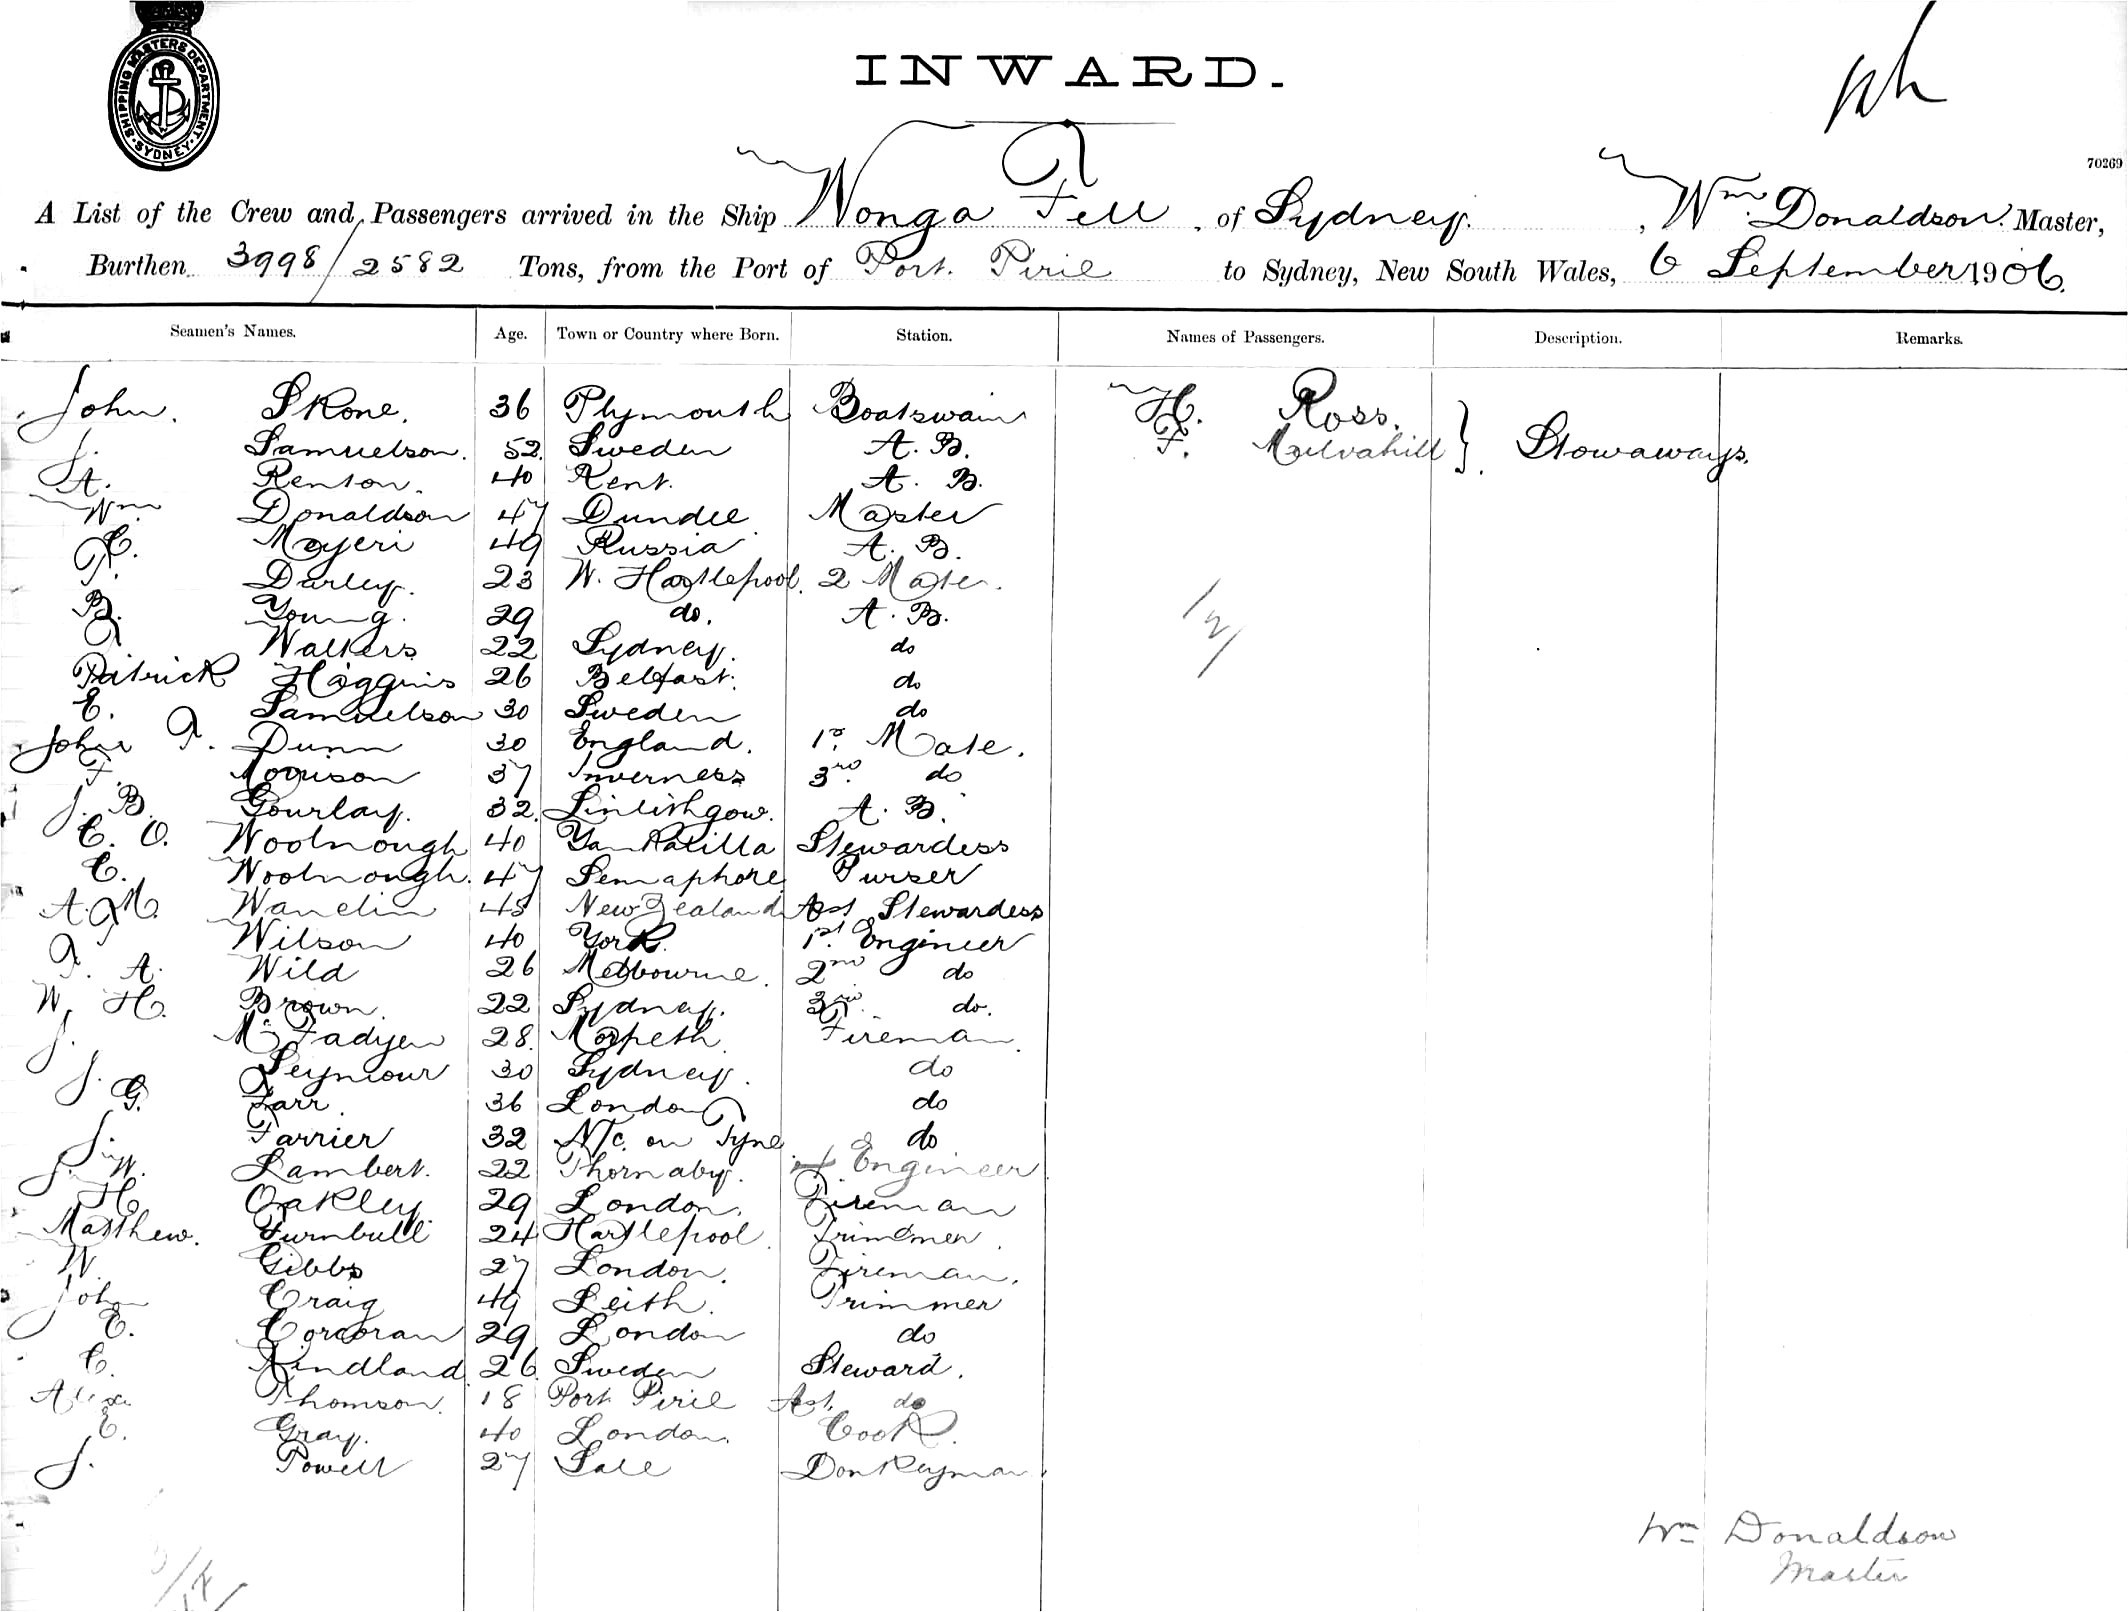 SHIPPING MASTERS DEPARTMENT
SYDNEY
INWARD.
70269
A List of the Crew and Passengers arrived in the Ship Wonga Fell, of Sydney, Wm Donaldson Master,
Burthen 3998/2582 Tons, from the Port of Port Pirie to Sydney, New South Wales, 6 September 1906.
Seamen's Names. Age. Town or Country where Born. Station. Names of Passengers. Description. Remarks.
John Skone. 36 Plymouth Boatswain H. Ross.
J. Samuelson. 52 Sweden A. B. F. Mulvahill } Stowaways.
A. Renton. 40 Kent. A. B.
Wm Donaldson 47 Dundee Master
C. Meyeri 49 Russia A. B.
T. Darley. 23 W. Hartlepool. 2 Mate.
B. Young. 29 do. A. B.
Walters 22 Sydney. do
Patrick Higgins 26 Belfast. do
E. Samuelson 30 Sweden do
John T. Dunn 30 England. 1st Mate.
F. Morrison 37 Inverness 3rd do
J. B. Gourlay. 32 Linlithgow. A. B.
C. O. Woolnough 40 Yankalilla Stewardess
C. Woolnough. 47 Semaphore Purser
A. M. 45 New Zealand Asst Stewardess
J. Wilson 40 York. 1st Engineer
T. A. Wild 26 Melbourne. 2nd do
W. H. Brown. 22 Sydney. 3rd do.
J. McFadyen 28. Morpeth. Fireman.
J. Seymour 30 Sydney. do
G. Farr. 36 London do
J. Farrier 32 N/c. on Tyne do
J. W. Lambert. 22 Thornaby. 4 Engineer
H. Oakley 29 London. Fireman
Matthew. Turnbull 24 Hartlepool. Trimmer.
W. Gibbs 27 London. Fireman.
John Craig 49 Leith. Trimmer
C. Corcoran 29 London do
C. Lindland 26 Sweden Steward.
Alex. Thomson. 18 Port Pirie Asst. do
C. Gray. 40 London. Cook.
J. Powell 27 Sale Donkeyman.
Wm Donaldson
Master